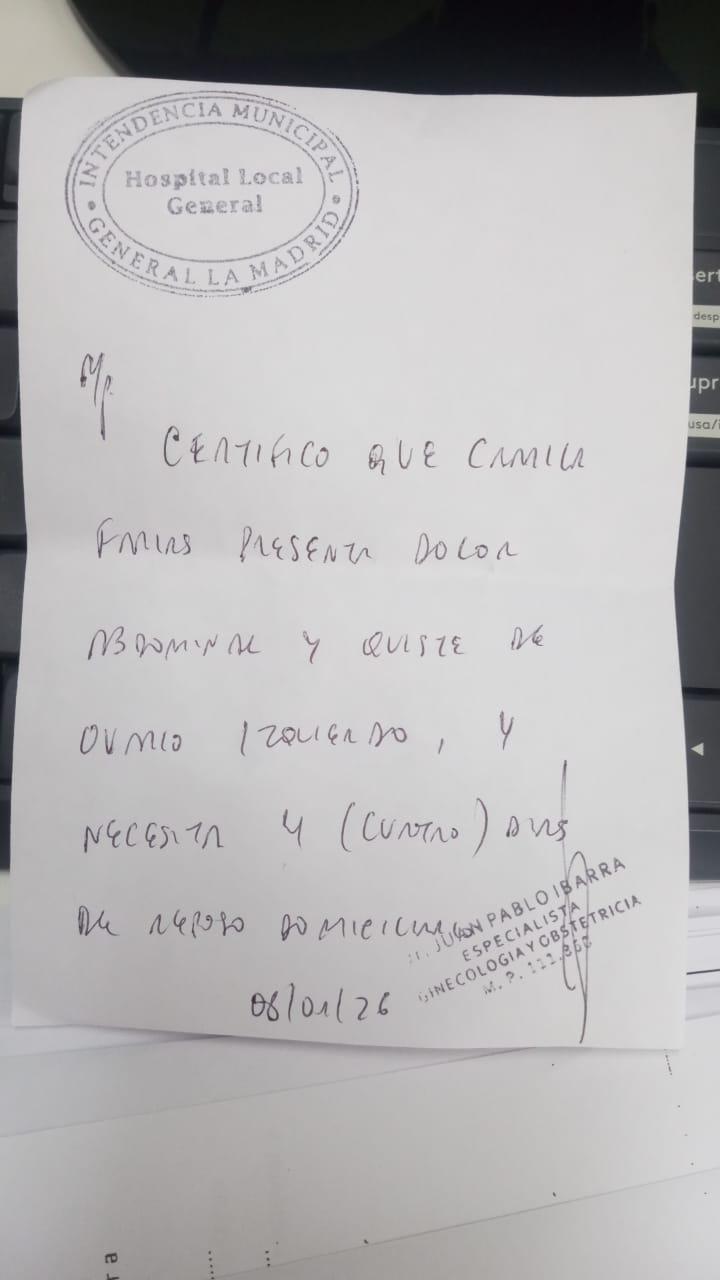 INTENDENCIA MUNICIPAL
Hospital Local
General
GENERAL LA MADRID
CERTIFICO QUE CAMILA
PRESENTA DOLOR
ABDOMINAL Y QUISTE DE
OVARIO IZQUIERDO, Y
NECESITA 4 (CUATRO) DIAS
DE REPOSO DOMICILIARIO
JUAN PABLO IBARRA
ESPECIALISTA
GINECOLOGIA Y OBSTETRICIA
M. P.
08/01/26